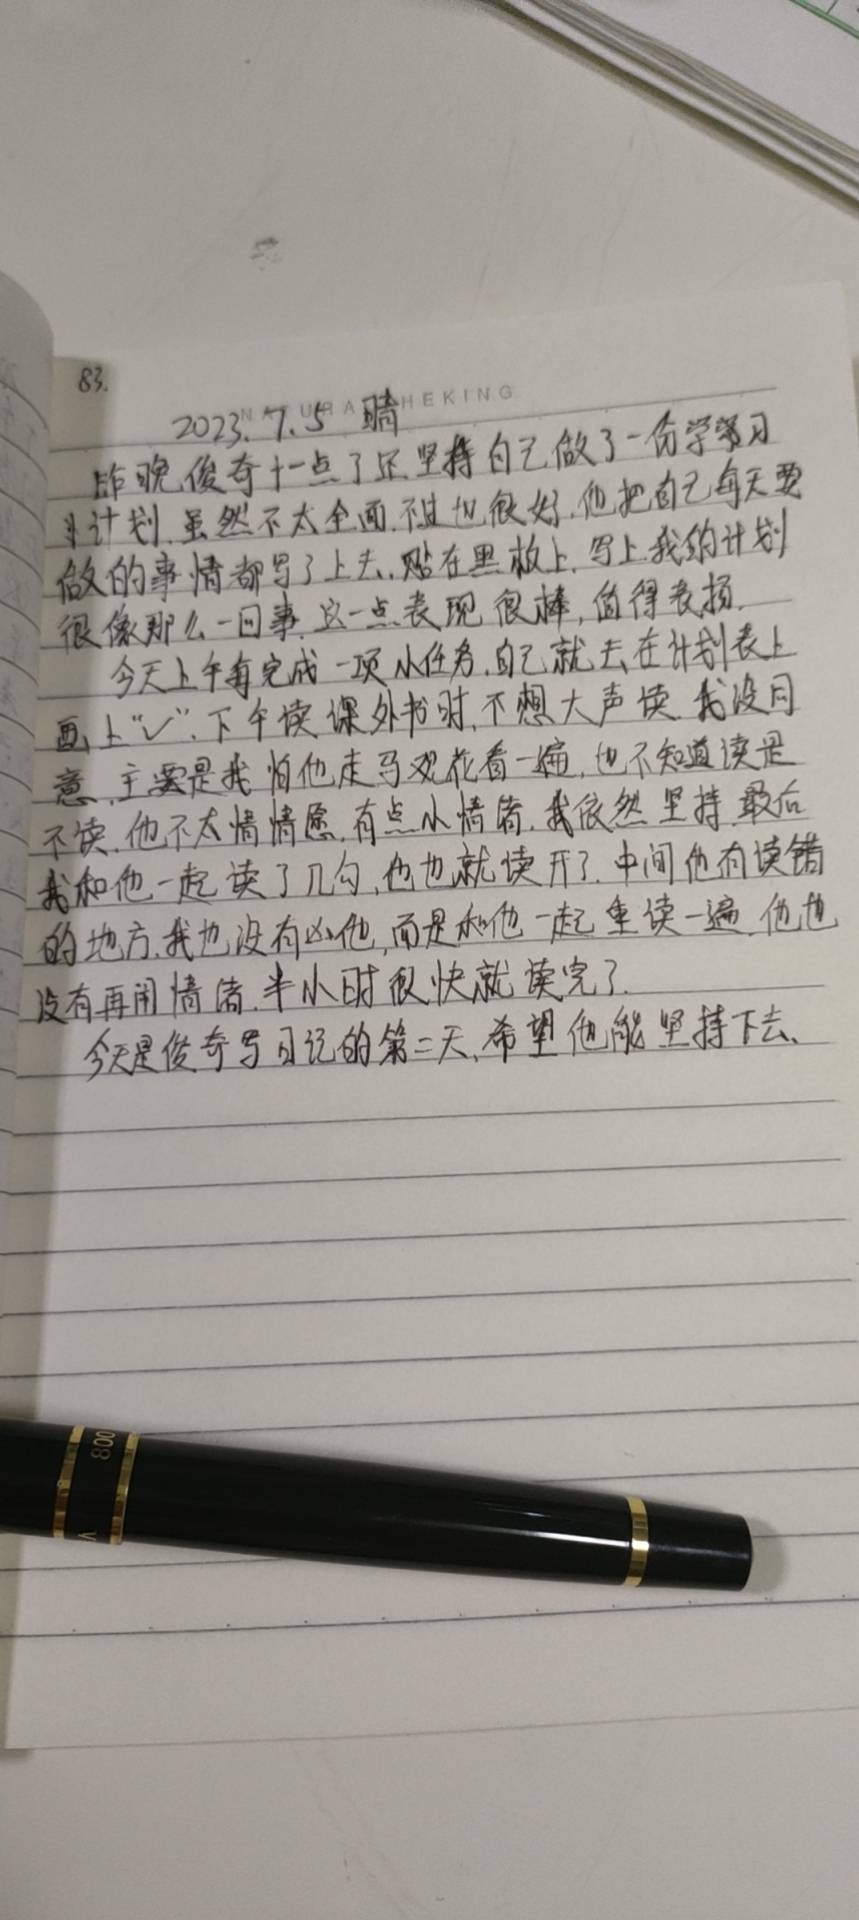 83.
NATURA THEKING
2023.7.5 晴
昨晚俊奇十一点了还坚持自己做了一份学习
计划.虽然不太全面.不过也很好.他把自己每天要
做的事情都写了上去.贴在黑板上.写上我的计划
很像那么一回事.这一点表现很棒,值得表扬.
今天上午每完成一项小任务.自己就去在计划表上
画上"√".下午读课外书时.不想大声读.我没同
意.主要是我怕他走马观花看一遍.也不知道读是
不读.他不太情情愿.有点小情绪.我依然坚持.最后
我和他一起读了几句,他也就读开了.中间他有读错
的地方.我也没有凶他,而是和他一起重读一遍.他也
没有再闹情绪.半小时很快就读完了.
今天是俊奇写日记的第二天.希望他能坚持下去.
800
V